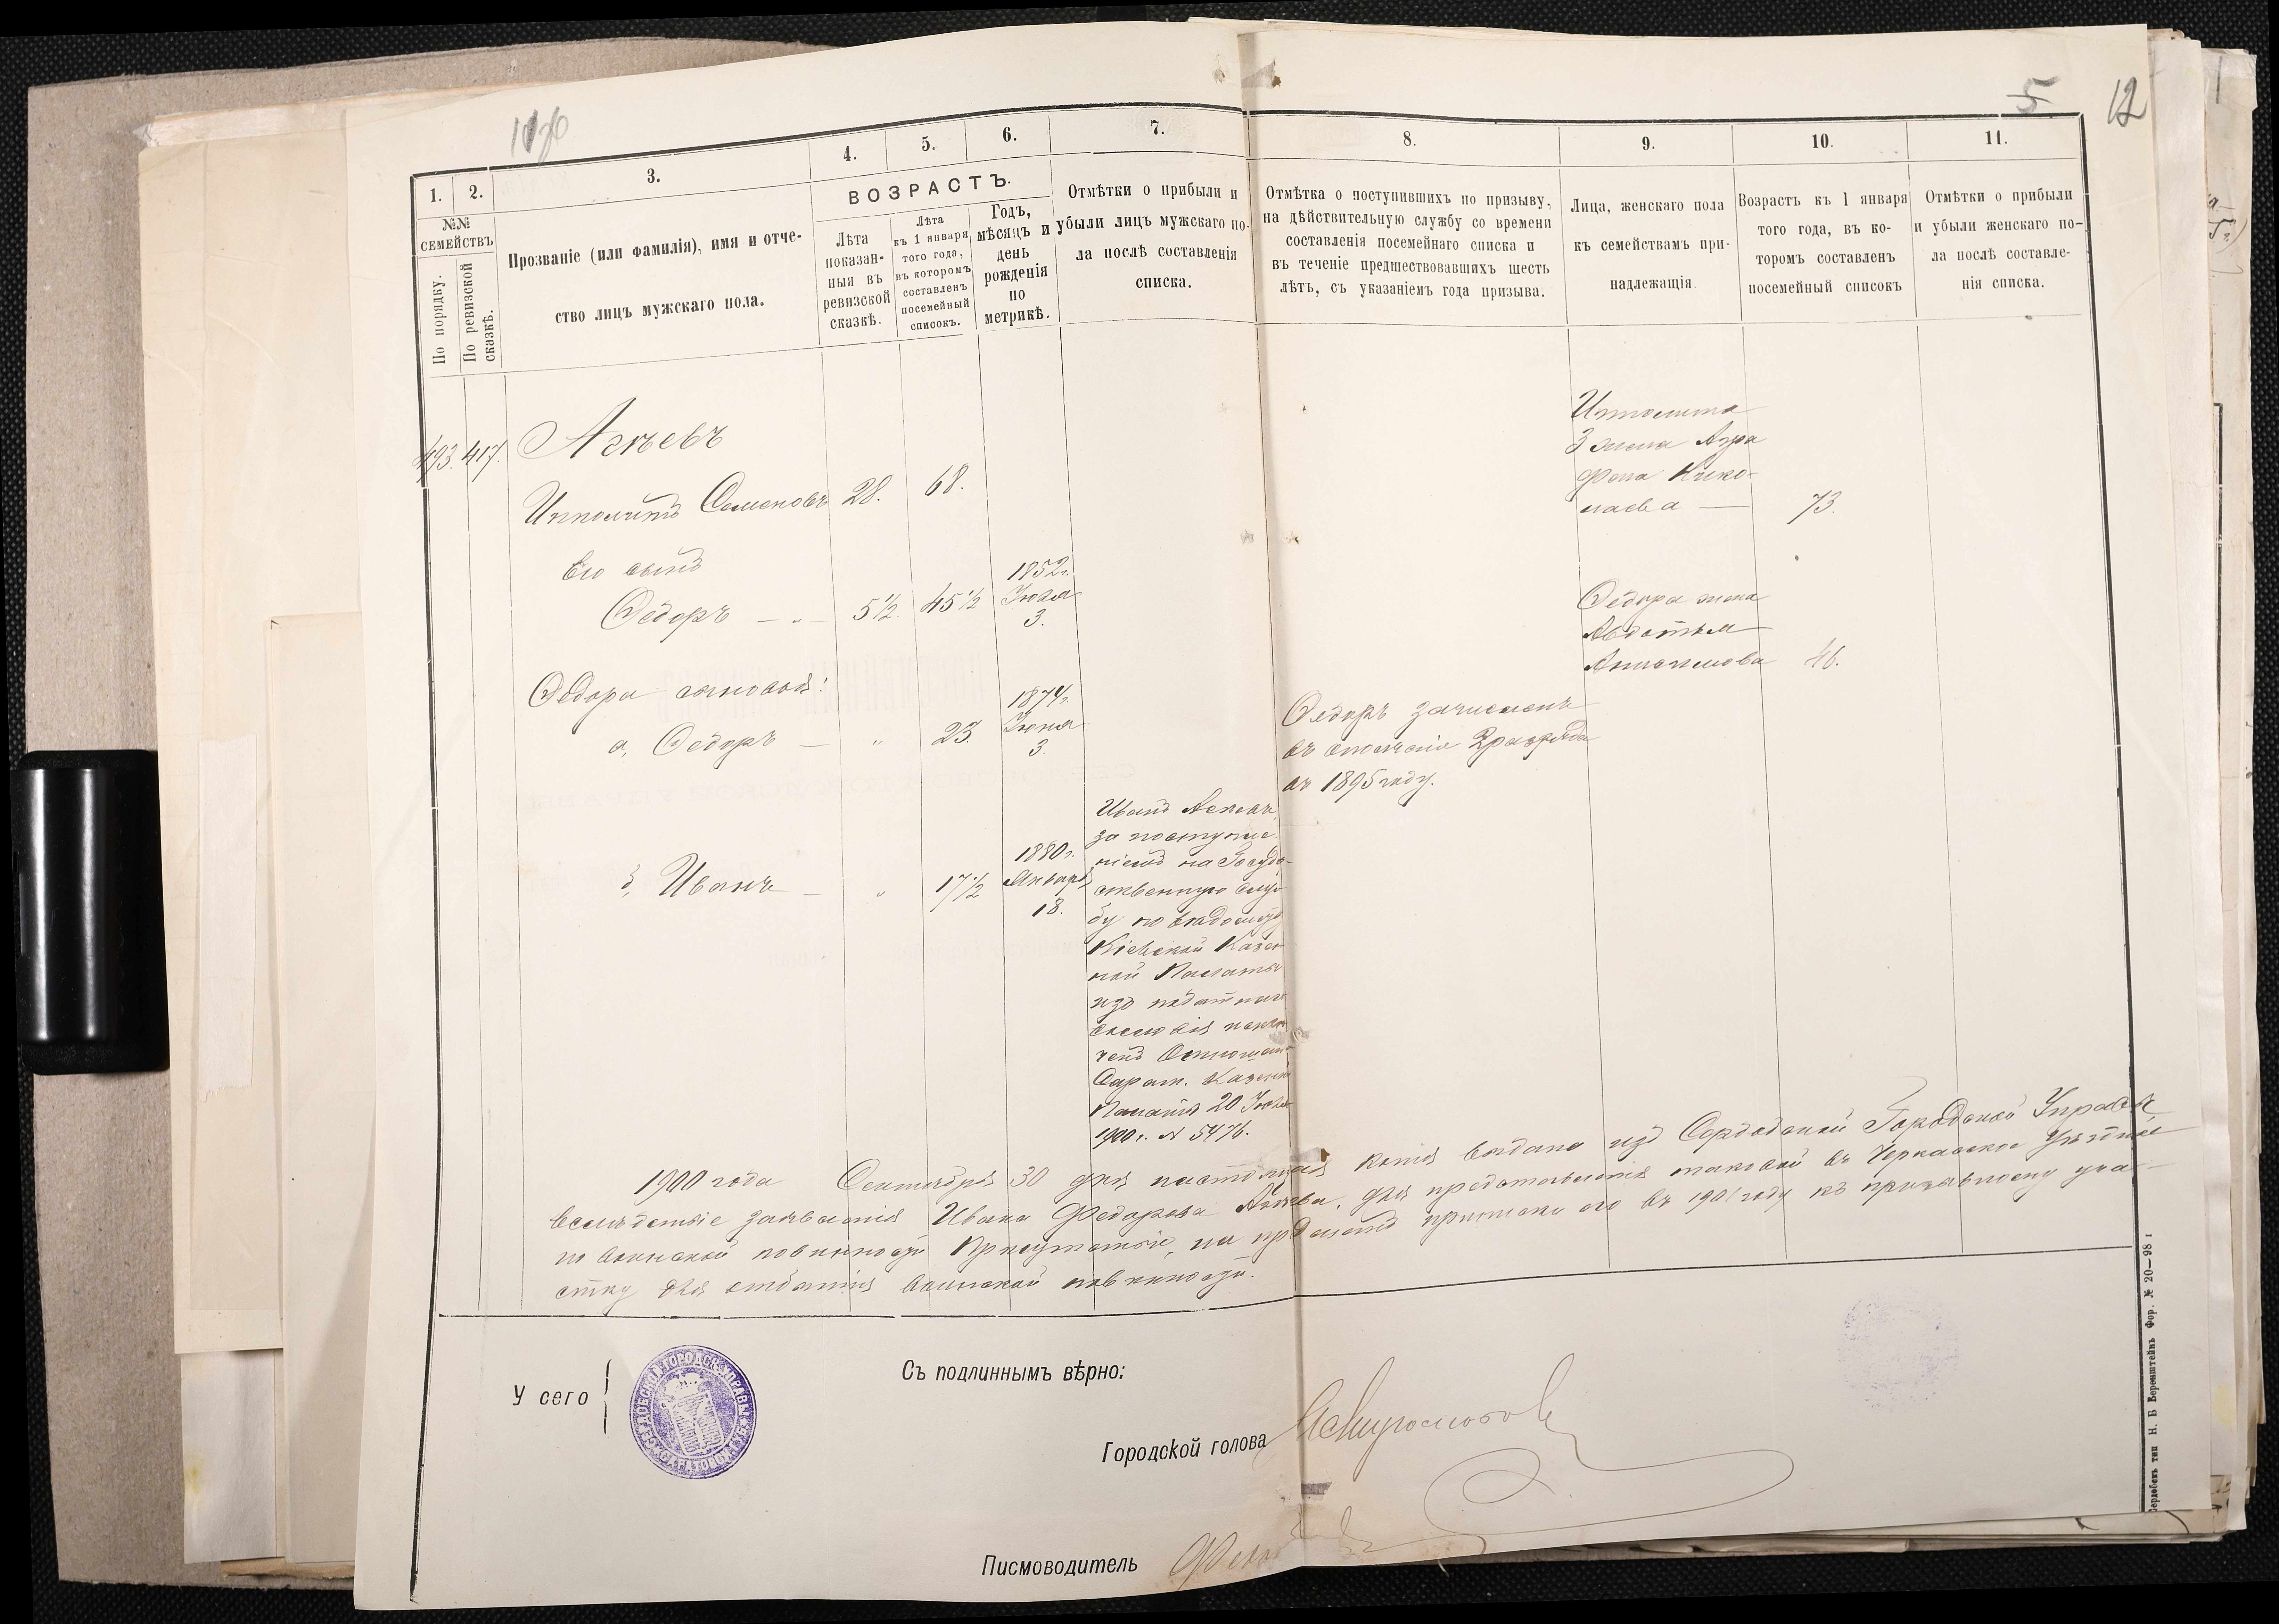 5
12
1. 2. 3. 4. 5. 6. 7. 8. 9. 10. 11.
№№ семействъ
По порядку.
По ревизской сказкѣ.
Прозваніе (или фамилія), имя и отче-
ство лицъ мужскаго пола.
ВОЗРАСТЪ.
Лѣта
показан-
ныя въ
ревизской
сказкѣ.
Лѣта
къ 1 января
того года,
въ которомъ
составленъ
посемейный
списокъ.
Годъ,
мѣсяцъ и
день
рожденія
по
метрикѣ.
Отмѣтки о прибыли и
убыли лицъ мужскаго по-
ла послѣ составленія
списка.
Отмѣтка о поступившихъ по призыву,
на дѣйствительную службу со времени
составленія посемейнаго списка и
въ теченіе предшествовавшихъ шесть
лѣтъ, съ указаніемъ года призыва.
Лица, женскаго пола
къ семействамъ при-
надлежащія.
Возрастъ къ 1 января
того года, въ ко-
торомъ составленъ
посемейный списокъ
Отмѣтки о прибыли
и убыли женскаго по-
ла послѣ составле-
нія списка.
493. 417. Агѣевъ
Ипполитъ Семеновъ 28. 68.
Ипполита
3 жена Агра
фена Нико-
лаева — 73.
Его сынъ
Ѳедоръ — „ — 5½. 45½
1852г.
Іюля
3.
Ѳедора жена
Авдотья
46.
Ѳедора сыновья:
а, Ѳедоръ — „ 23.
1874г.
Іюня
3.
Ѳедоръ зачисленъ
въ ополченіе 2 разряда
въ 1895 году.
Иванъ — „ 17½
1880г.
Январь
18.
Иванъ Агѣевъ,
за поступле-
ніемъ на Госуда-
рственную служ-
бу по вѣдомству
Кіевской Казен-
ной Палаты
изъ податнаго
сословія исклю-
ченъ Отношен.
Сарат. Казенной
Палаты 20 Іюля
1900 г. № 5476.
1900 года Сентября 30 дня настоящая копія выдана изъ Сердобской Городской Управы,
вслѣдствіе заявленія Ивана Федорова Агѣева, для представленія таковой въ Черкасское Уѣздное
по воинской повинности Присутствіе, на предметъ приписки его въ 1901 году къ призывному уча-
стку для отбытія воинской повинности.
У сего
Съ подлиннымъ вѣрно:
Городской голова
Писмоводитель
Сердобскъ тип Н. Б Беренштейнъ Фор. № 20—98 г